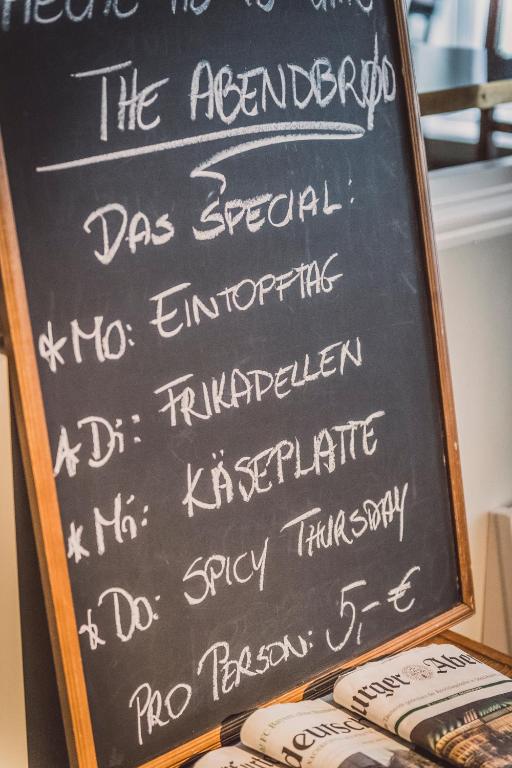 THE ABENDBRØD
DAS SPECIAL:
* MO: EINTOPFTAG
* Di: FRIKADELLEN
* Mi: KÄSEPLATTE
* Do: SPICY THURSDAY
PRO PERSON: 5,- €
urger Abe
deutsch